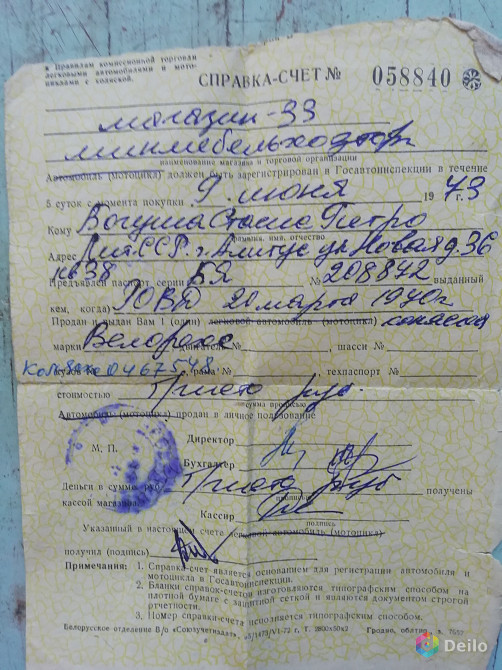 к Правилам комиссионной торговли
легковыми автомобилями и мото-
циклами с коляской.
СПРАВКА-СЧЕТ № 058840
магазин-33
наименование магазина и торговой организации
Автомобиль (мотоцикл) должен быть зарегистрирован в Госавтоинспекции в течение
5 суток с момента покупки 9 июня 1973 г.
Кому Богуша Стасис Петро
фамилия, имя, отчество
Адрес Лит.ССР. г. Алитус ул Новая д. 36
кв 38
Предъявлен паспорт серии БЯ № 208842 выданный
кем, когда) РОВД 20 марта 1970г
Продан и выдан Вам 1 (один) легковой автомобиль (мотоцикл)
марки Велорекс двигатель № шасси №
кузов № 0467548 рама № техпаспорт №
стоимостью Триста руб.
сумма прописью
Автомобиль (мотоцикл) продан в личное пользование
М. П.
Директор
Бухгалтер
Деньги в сумме руб. Триста руб получены
прописью
кассой магазина
Кассир
подпись
Указанный в настоящем счете легковой автомобиль (мотоцикл)
получил (подпись)
Примечания: 1. Справка-счет является основанием для регистрации автомобиля и
мотоцикла в Госавтоинспекции.
2. Бланки справок-счетов изготовляются типографским способом на
плотной бумаге с защитной сеткой и являются документом строгой
отчетности.
3. Номер справки-счета исполняется типографским способом.
Белорусское отделение В/о «Союзучетиздат», з5/1473/V1-72 г. Т. 2800х50х2 Гродно, облтип. з. 7557
Deilo